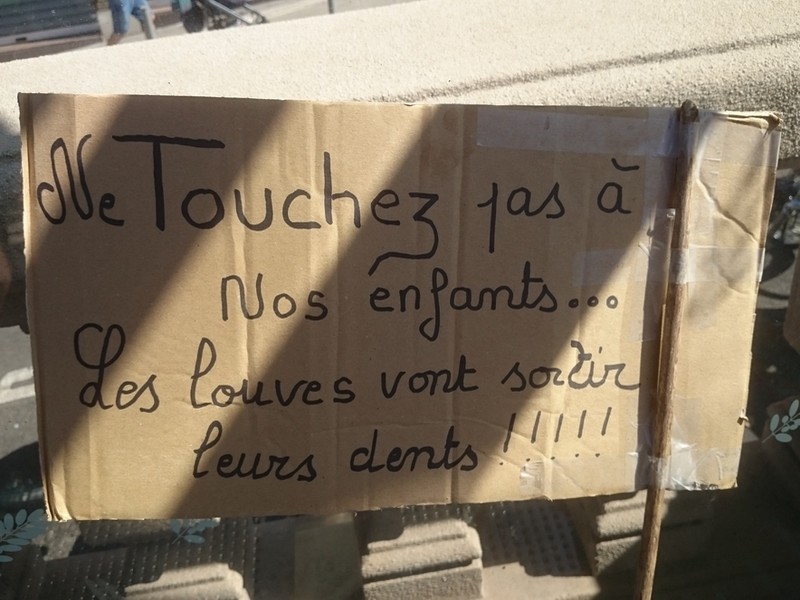 Ne Touchez pas à
Nos enfants...
Les louves vont sortir
leurs dents !!!!!